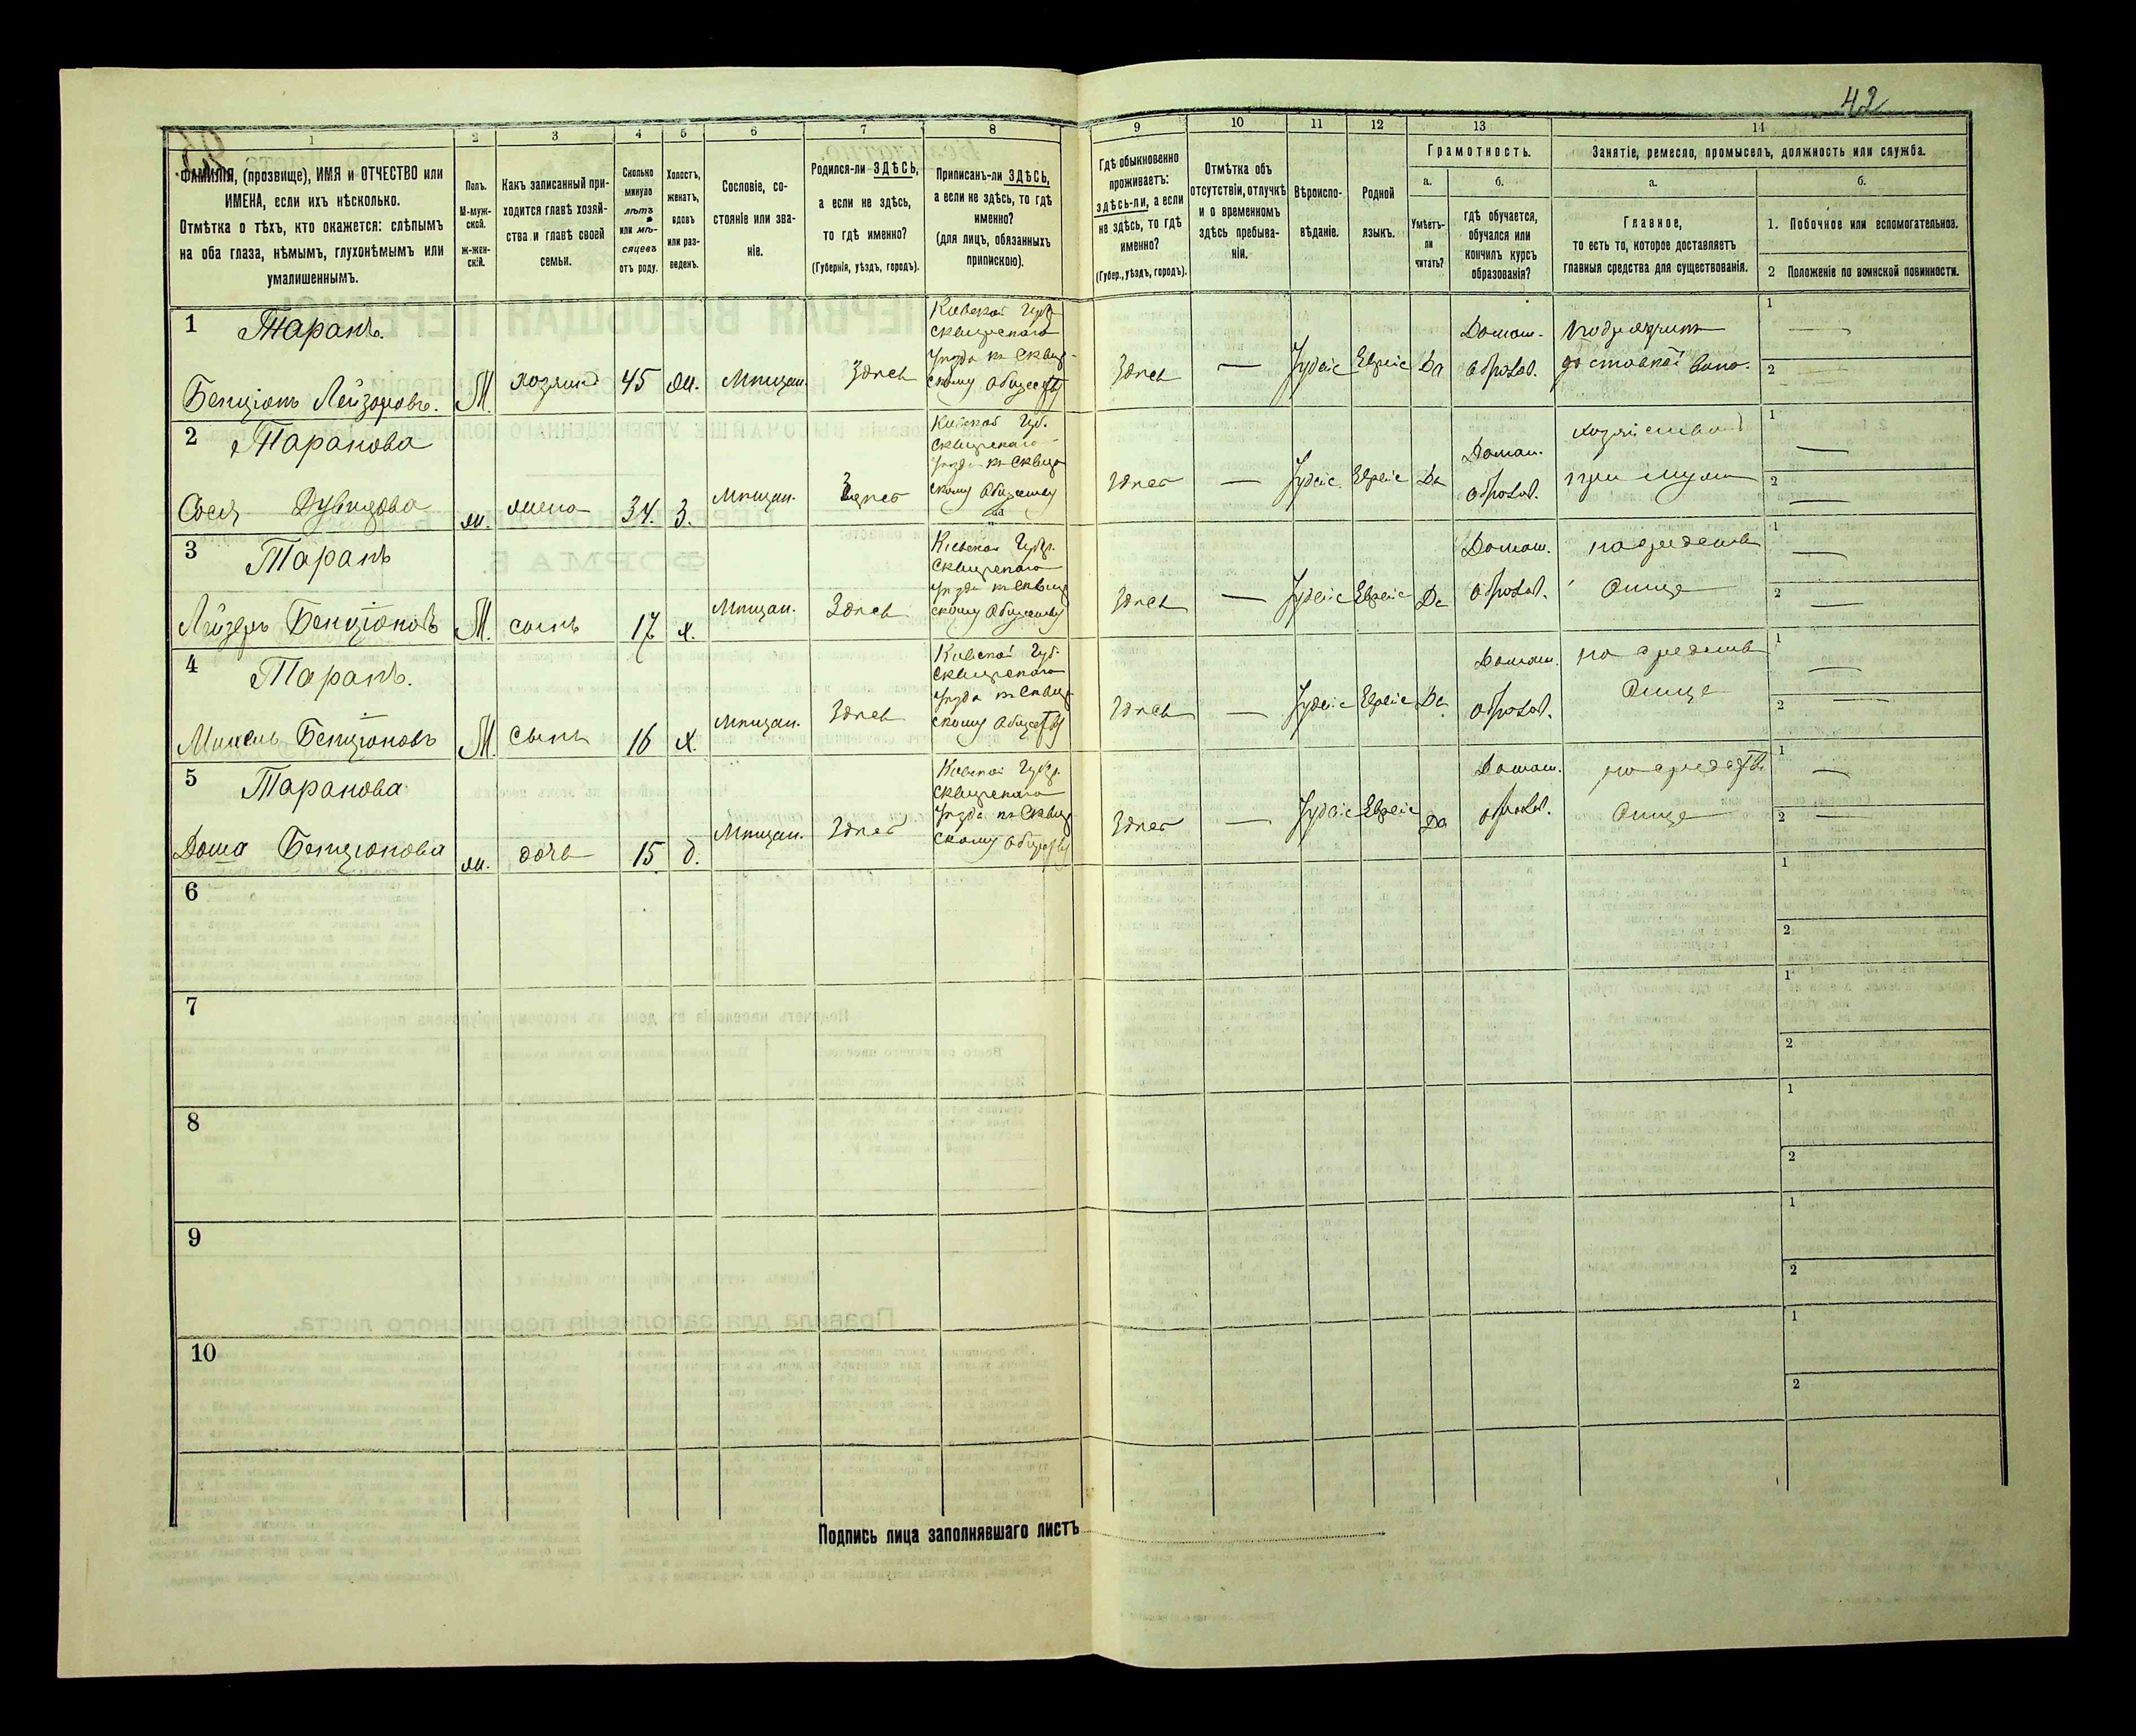 42
1
2
3
4
5
6
7
8
9
10
11
12
13
14
ФАМИЛІЯ, (прозвище), ИМЯ и ОТЧЕСТВО или
ИМЕНА, если ихъ нѣсколько.
Отмѣтка о тѣхъ, кто окажется: слѣпымъ
на оба глаза, нѣмымъ, глухонѣмымъ или
умалишеннымъ.
Полъ.
М-муж-
ской.
Ж-жен-
скій.
Какъ записанный при-
ходится главѣ хозяй-
ства и главѣ своей
семьи.
Сколько
минуло
лѣтъ
или мѣ-
сяцевъ
отъ роду.
Холостъ,
женатъ,
вдовъ
или раз-
веденъ.
Сословіе, со-
стояніе или зва-
ніе.
Родился-ли ЗДѢСЬ,
а если не здѣсь,
то гдѣ именно?
(Губернія, уѣздъ, городъ).
Приписанъ-ли ЗДѢСЬ,
а если не здѣсь, то гдѣ
именно?
(для лицъ, обязанныхъ
припискою).
Гдѣ обыкновенно
проживаетъ:
здѣсь-ли, а если
не здѣсь, то гдѣ
именно?
(Губер., уѣздъ, городъ).
Отмѣтка объ
отсутствіи, отлучкѣ
и о временномъ
здѣсь пребыва-
ніи.
Вѣроиспо-
вѣданіе.
Родной
языкъ.
Грамотность.
а.
Умѣетъ-
ли
читать?
б.
гдѣ обучается,
обучался или
кончилъ курсъ
образованія?
Занятіе, ремесло, промыселъ, должность или служба.
а.
Главное,
то есть то, которое доставляетъ
главныя средства для существованія.
б.
1. Побочное или вспомогательное.
2 Положеніе по воинской повинности.
1 Таранъ.
Бенціонъ Лейзеровъ.
М. хозяинъ 45 ж. Мѣщан. Здѣсь
Кіевской Губ.
Сквирскаго
Уѣзда къ Сквир-
скому Обществу
Здѣсь — Іудейс Еврейс Да
Домаш.
образов.
1 —
2
2 Таранова
Сося
ж. жена 34. З. Мѣщан. Здѣсь
Кіевской Губ.
Сквирскаго
Уѣзда къ Сквир
скому Обществу
Здѣсь — Іудейс. Еврейс Да
Домаш.
образов.
хозяйство
при мужѣ
1 —
2 —
3 Таранъ
Лейзеръ Бенціоновъ
М. сынъ 17 х. Мѣщан. Здѣсь
Кіевской Губер.
Сквирскаго
Уѣзда къ Сквир
скому Обществу
Здѣсь — Іудейс Еврейс Да
Домаш.
образов.
на средства
Отца
1 —
2 —
4 Таранъ.
Бенціоновъ
М. Сынъ 16 х. Мѣщан. Здѣсь
Кіевской Губ.
Сквирскаго
Уѣзда къ Сквир
скому Обществу
Здѣсь — Іудейс Еврейс Да
Домаш.
образов.
на средства
Отца
1 —
2 —
5 Таранова
Бенціонова
ж. дочь 15 д. Мѣщан. Здѣсь
Кіевской Губер.
Сквирскаго
Уѣзда къ Сквир
скому Обществу
Здѣсь — Іудейс Еврейс Да
Домаш.
образов.
на средства
Отца
1 —
2 —
6
1
2
7
1
2
8
1
2
9
1
2
10
1
2
Подпись лица заполнявшаго листъ